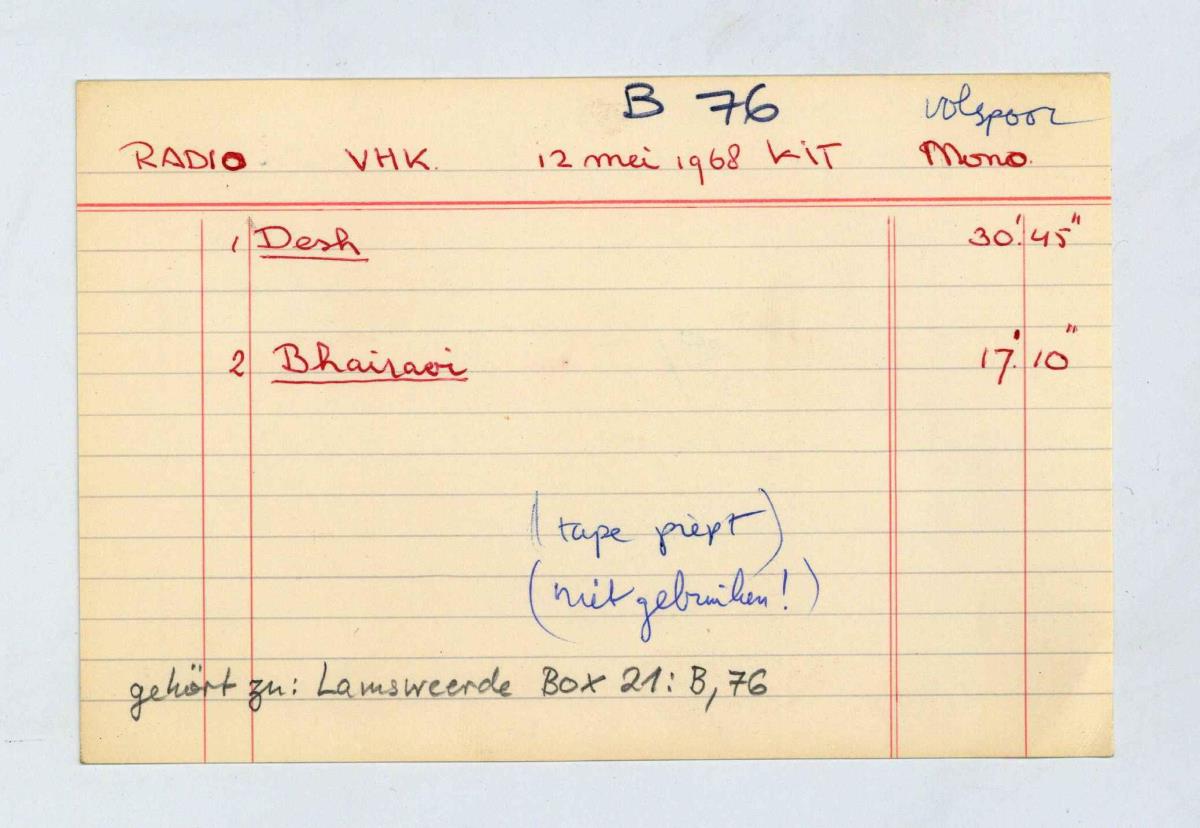 B 76 volspoor
RADIO VHK. 12 mei 1968 KiT Mono.
1 Desh 30' 45"
2 Bhairavi 17' 10"
(tape piept)
(niet gebruiken!)
gehört zu: Lamsweerde Box 21: B, 76